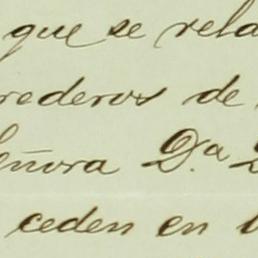 que se rela
rederos de
eñora D.ª
ceden en